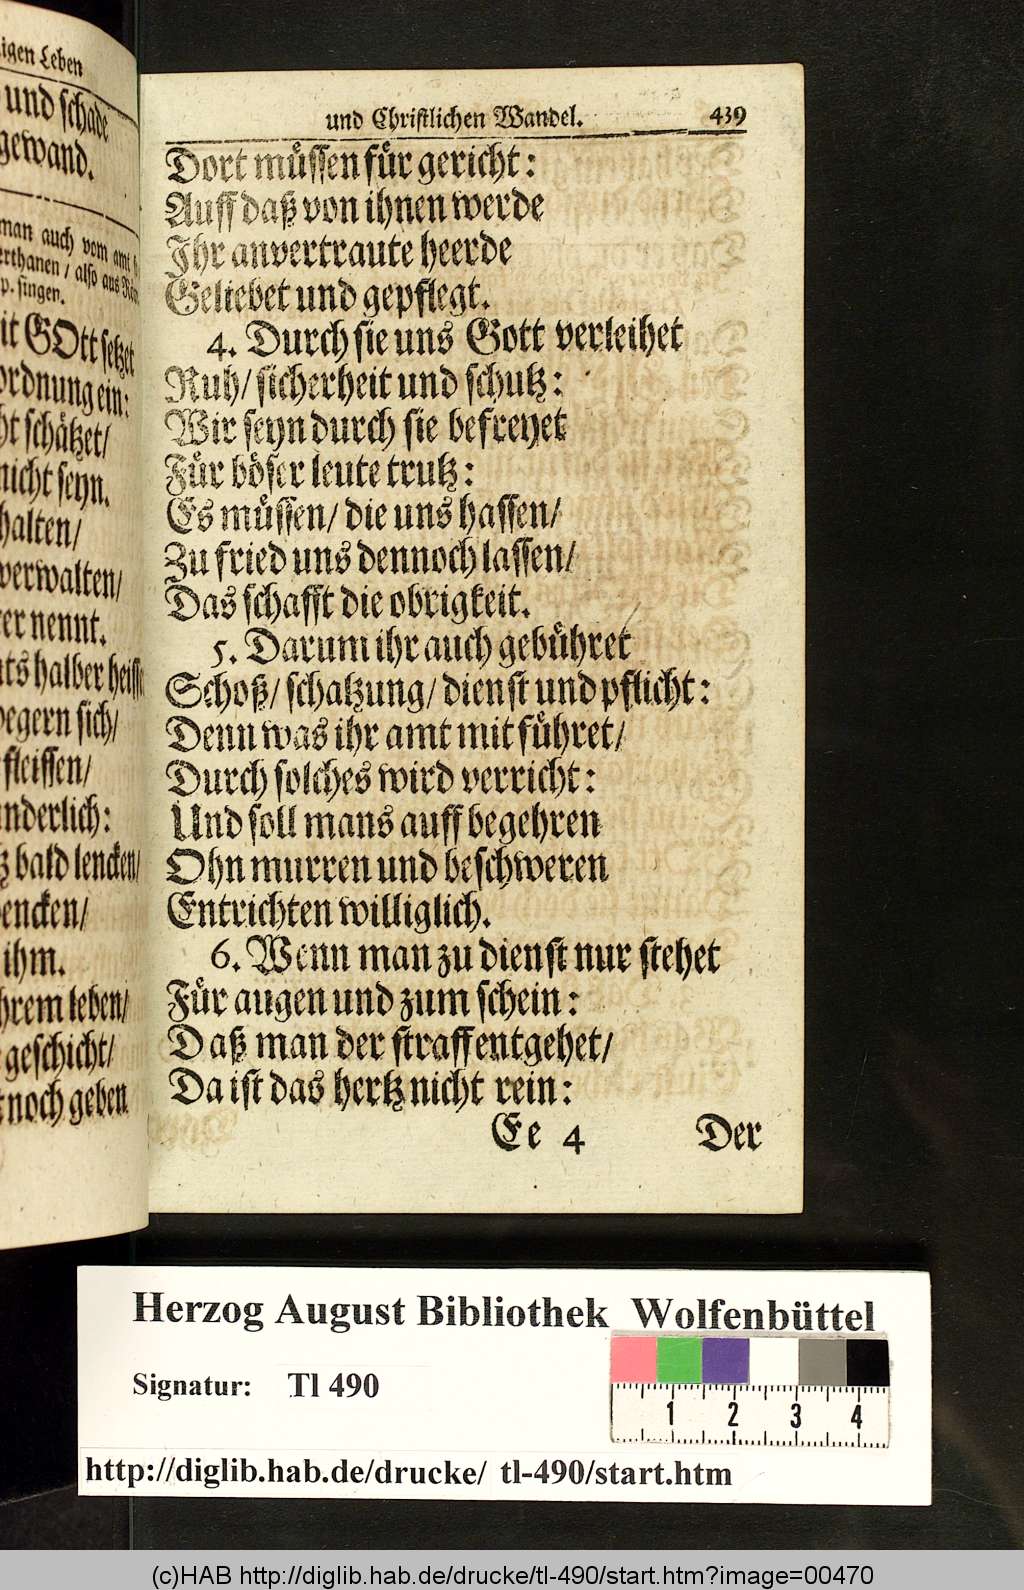 igen Leben
und schade
gewand.
man auch vom amt
erthanen / also aus
p. singen.
it GOtt setzet
ordnung ein:
ht schätzet/
nicht seyn.
halten/
verwalten/
er nennt.
ts halber heisse
egern sich/
fleissen/
nderlich:
bald lencken/
encken/
ihm.
hrem leben/
geschicht/
noch geben
und Christlichen Wandel. 439
Dort müssen für gericht:
Auff daß von ihnen werde
Ihr anvertraute heerde
Geliebet und gepflegt.
4. Durch sie uns Gott verleihet
Ruh/ sicherheit und schutz:
Wir seyn durch sie befreyet
Für böser leute trutz:
Es müssen/ die uns hassen/
Zu fried uns dennoch lassen/
Das schafft die obrigkeit.
5. Darum ihr auch gebühret
Schoß/ schatzung/ dienst und pflicht:
Denn was ihr amt mit führet/
Durch solches wird verricht:
Und soll mans auff begehren
Ohn murren und beschweren
Entrichten williglich.
6. Wenn man zu dienst nur stehet
Für augen und zum schein:
Daß man der straff entgehet/
Da ist das hertz nicht rein:
Ee 4 Der
Herzog August Bibliothek Wolfenbüttel
Signatur: Tl 490
1 2 3 4
http://diglib.hab.de/drucke/ tl-490/start.htm
(c)HAB http://diglib.hab.de/drucke/tl-490/start.htm?image=00470